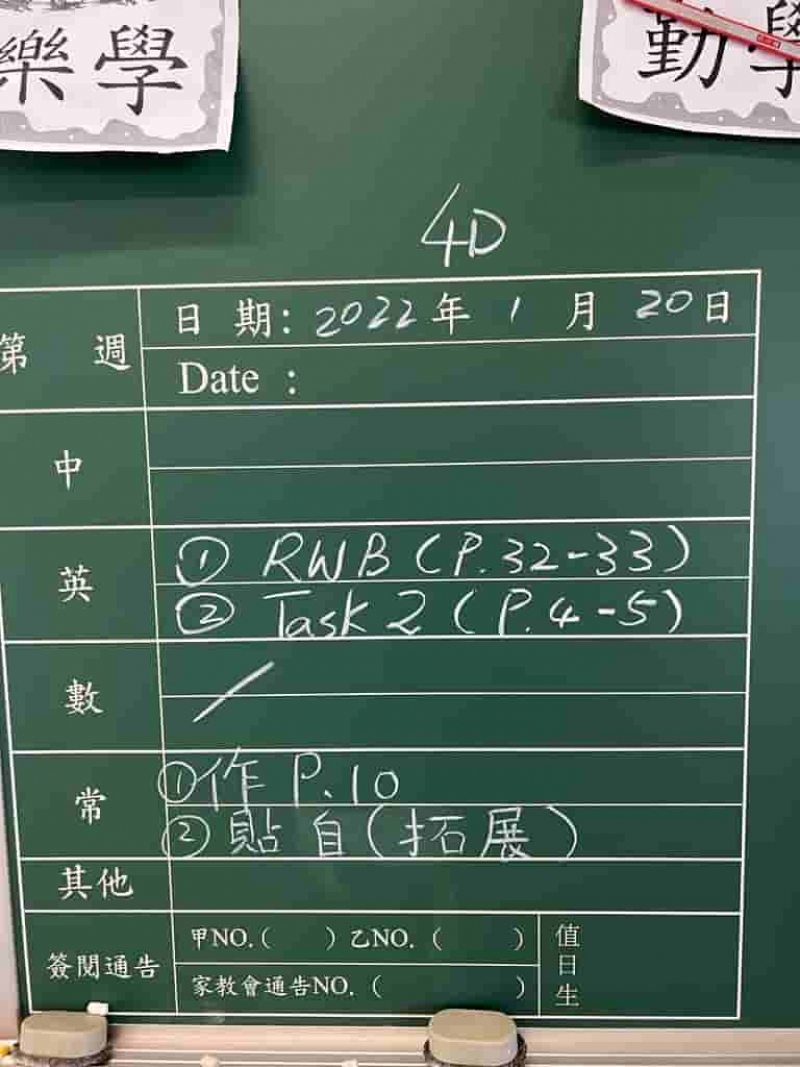 樂學
勤學
4D
第 週
日 期: 2022年 1 月 20日
Date :
中
英
① RWB (P.32-33)
② Task 2 (P.4-5)
數
/
常
①作 P.10
②貼自(拓展)
其他
簽閱通告
甲NO.( ) 乙NO. ( )
家教會通告NO. ( )
值日生